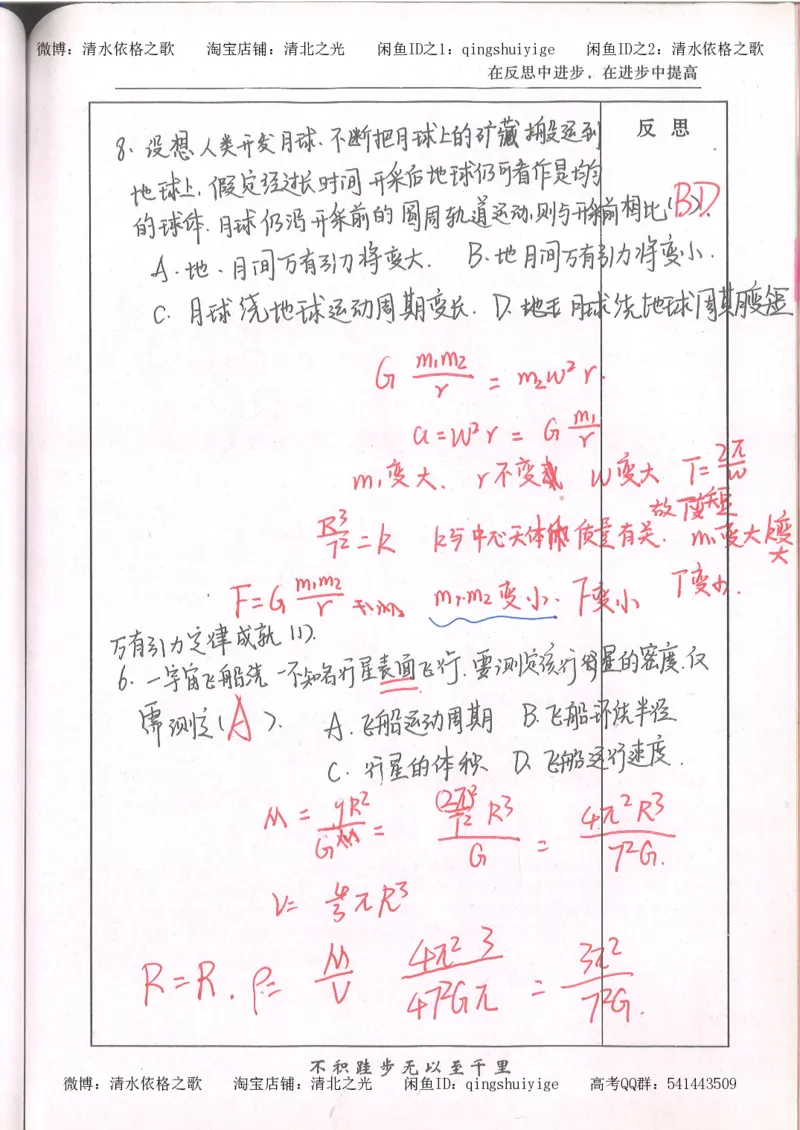 微博：清水依格之歌 淘宝店铺：清北之光 闲鱼ID之1：qingshuiyige 闲鱼ID之2：清水依格之歌
在反思中进步，在进步中提高
反 思
8、设想人类开发月球、不断把月球上的矿藏搬运到
地球上，假定经过长时间开采后地球仍可看作是均匀
的球体.月球仍沿开采前的圆周轨道运动,则与开采前相比(BD).
A.地、月间万有引力将变大. B.地月间万有引力将变小.
C.月球绕地球运动周期变长. D.月球绕地球周期变短
G m₁m₂/r = m₂w²r.
a=w²r = G m₁/r
m₁变大. r不变 w变大 T=2π/w
故T变短
R³/T²=k k与中心天体质量有关. m₁变大k变大
F=G m₁m₂/r m₁.m₂变小. F变小 T变小.
万有引力定律成就(1).
6.一宇宙飞船绕一不知名行星表面飞行.要测定该行星的密度.仅
需测定(A). A.飞船运动周期 B.飞船环绕半径
C.行星的体积 D.飞船运行速度.
M = gR²/G = (2π)²/T² R³/G = 4π²R³/T²G.
V= 4/3 πR³
R=R. ρ= M/V 4π² 3/4T²Gπ = 3π²/T²G.
不积跬步无以至千里
微博：清水依格之歌 淘宝店铺：清北之光 闲鱼ID：qingshuiyige 高考QQ群：541443509